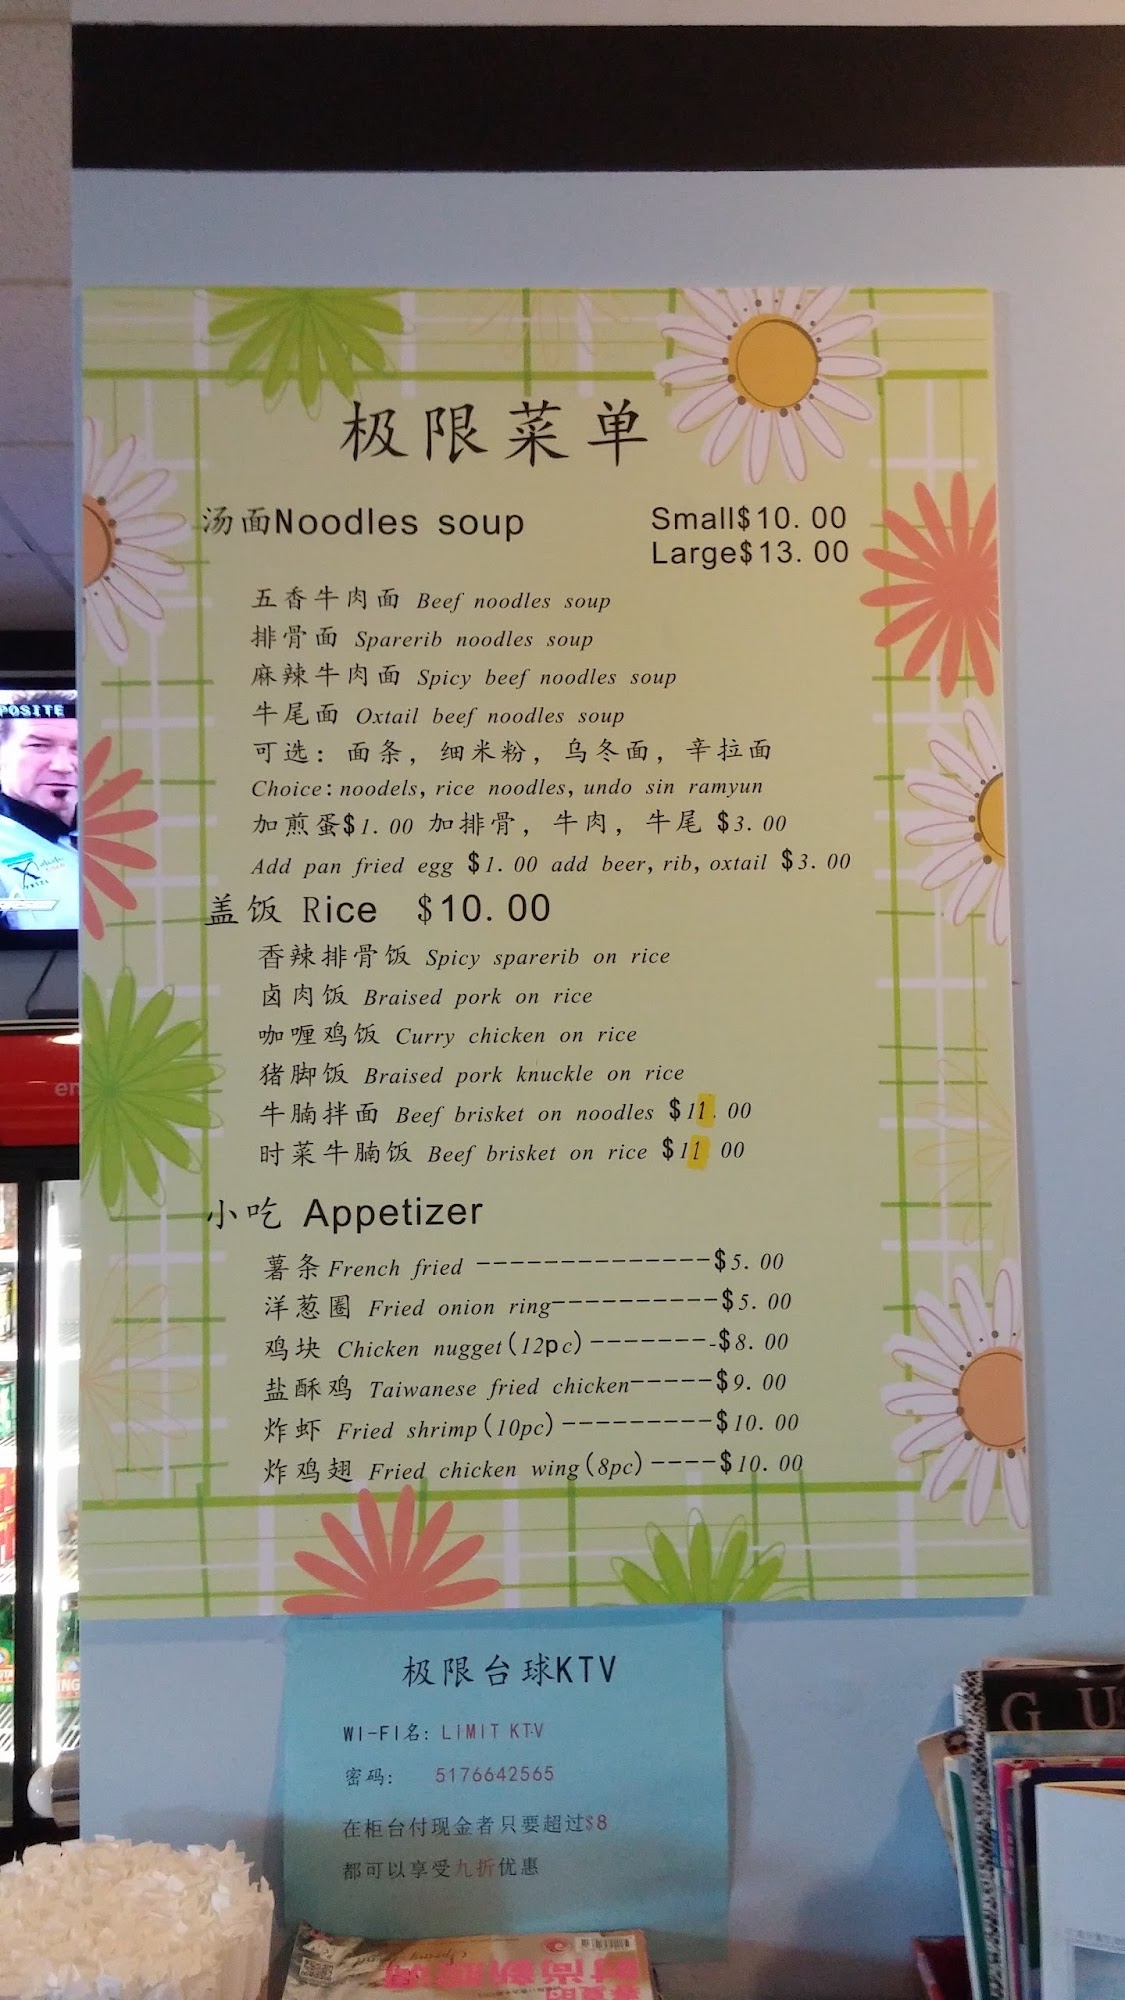 极限菜单
汤面Noodles soup Small$10.00
Large$13.00
五香牛肉面 Beef noodles soup
排骨面 Sparerib noodles soup
麻辣牛肉面 Spicy beef noodles soup
牛尾面 Oxtail beef noodles soup
可选：面条，细米粉，乌冬面，辛拉面
Choice:noodels,rice noodles,undo sin ramyun
加煎蛋$1.00 加排骨，牛肉，牛尾 $3.00
Add pan fried egg $1.00 add beer,rib,oxtail $3.00
盖饭 Rice $10.00
香辣排骨饭 Spicy sparerib on rice
卤肉饭 Braised pork on rice
咖喱鸡饭 Curry chicken on rice
猪脚饭 Braised pork knuckle on rice
牛腩拌面 Beef brisket on noodles $11.00
时菜牛腩饭 Beef brisket on rice $11 00
小吃 Appetizer
薯条 French fried --------------$5.00
洋葱圈 Fried onion ring----------$5.00
鸡块 Chicken nugget(12pc)--------$8.00
盐酥鸡 Taiwanese fried chicken-----$9.00
炸虾 Fried shrimp(10pc)---------$10.00
炸鸡翅 Fried chicken wing(8pc)----$10.00
极限台球KTV
WI-FI名: LIMIT KTV
密码: 5176642565
在柜台付现金者只要超过$8
都可以享受九折优惠
POSITE
G U
时尚新